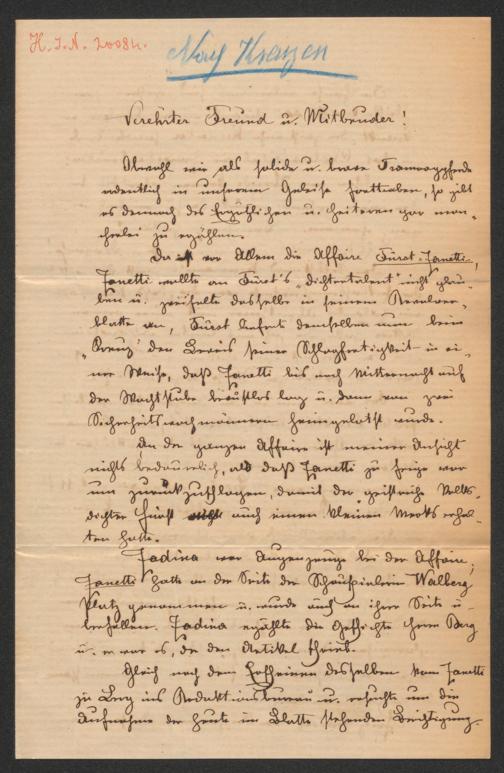 H. I. N. 20084.
Nach Krazen
Verehrter Freund u. Mitbruder!
Obwohl wir als solide u. brave Tramwaypferde
ordentlich in unserem Geleise forttraben, so gibt
es dennoch des Ergötzlichen u. Heiteren gar man-
cherlei zu erzählen.
Da ist vor Allem die Affaire Fürst-Janetti,
Janetti wollte an Fürst's „Dichtertalent" nicht glau-
ben u. zweifelte dasselbe in seinem Revolver-
blatte an, Fürst lieferte demselben nun beim
„Kreuz" den Beweis seiner Schlagfertigkeit in ei-
ner Weise, daß Janetti bis nach Mitternacht auf
der Wachtstube bewußtlos lag u. dann von zwei
Sicherheitswachmännern heimgelotst wurde.
An der ganzen Affaire ist meiner Ansicht
nichts bedauerlich, als daß Janetti zu feige war
um zurückzuschlagen, damit der „geistreiche Volks-
dichter Fürst auch einen kleinen Merks erhal-
ten hätte.
Jadina war Augenzeuge bei der Affaire;
Janetti hatte an der Seite der Schauspielerin Walberg
Platz genommen u. wurde auch an ihrer Seite ü-
berfallen. Jadina erzählte die Geschichte Herrn Berg
u. er war es, der den Artikel schrieb.
Gleich nach dem Erscheinen desselben kam Janetti
zu Berg ins Redaktionsbureau u. ersuchte um die
Aufnahme der heute im Blatte stehenden Berichtigung.